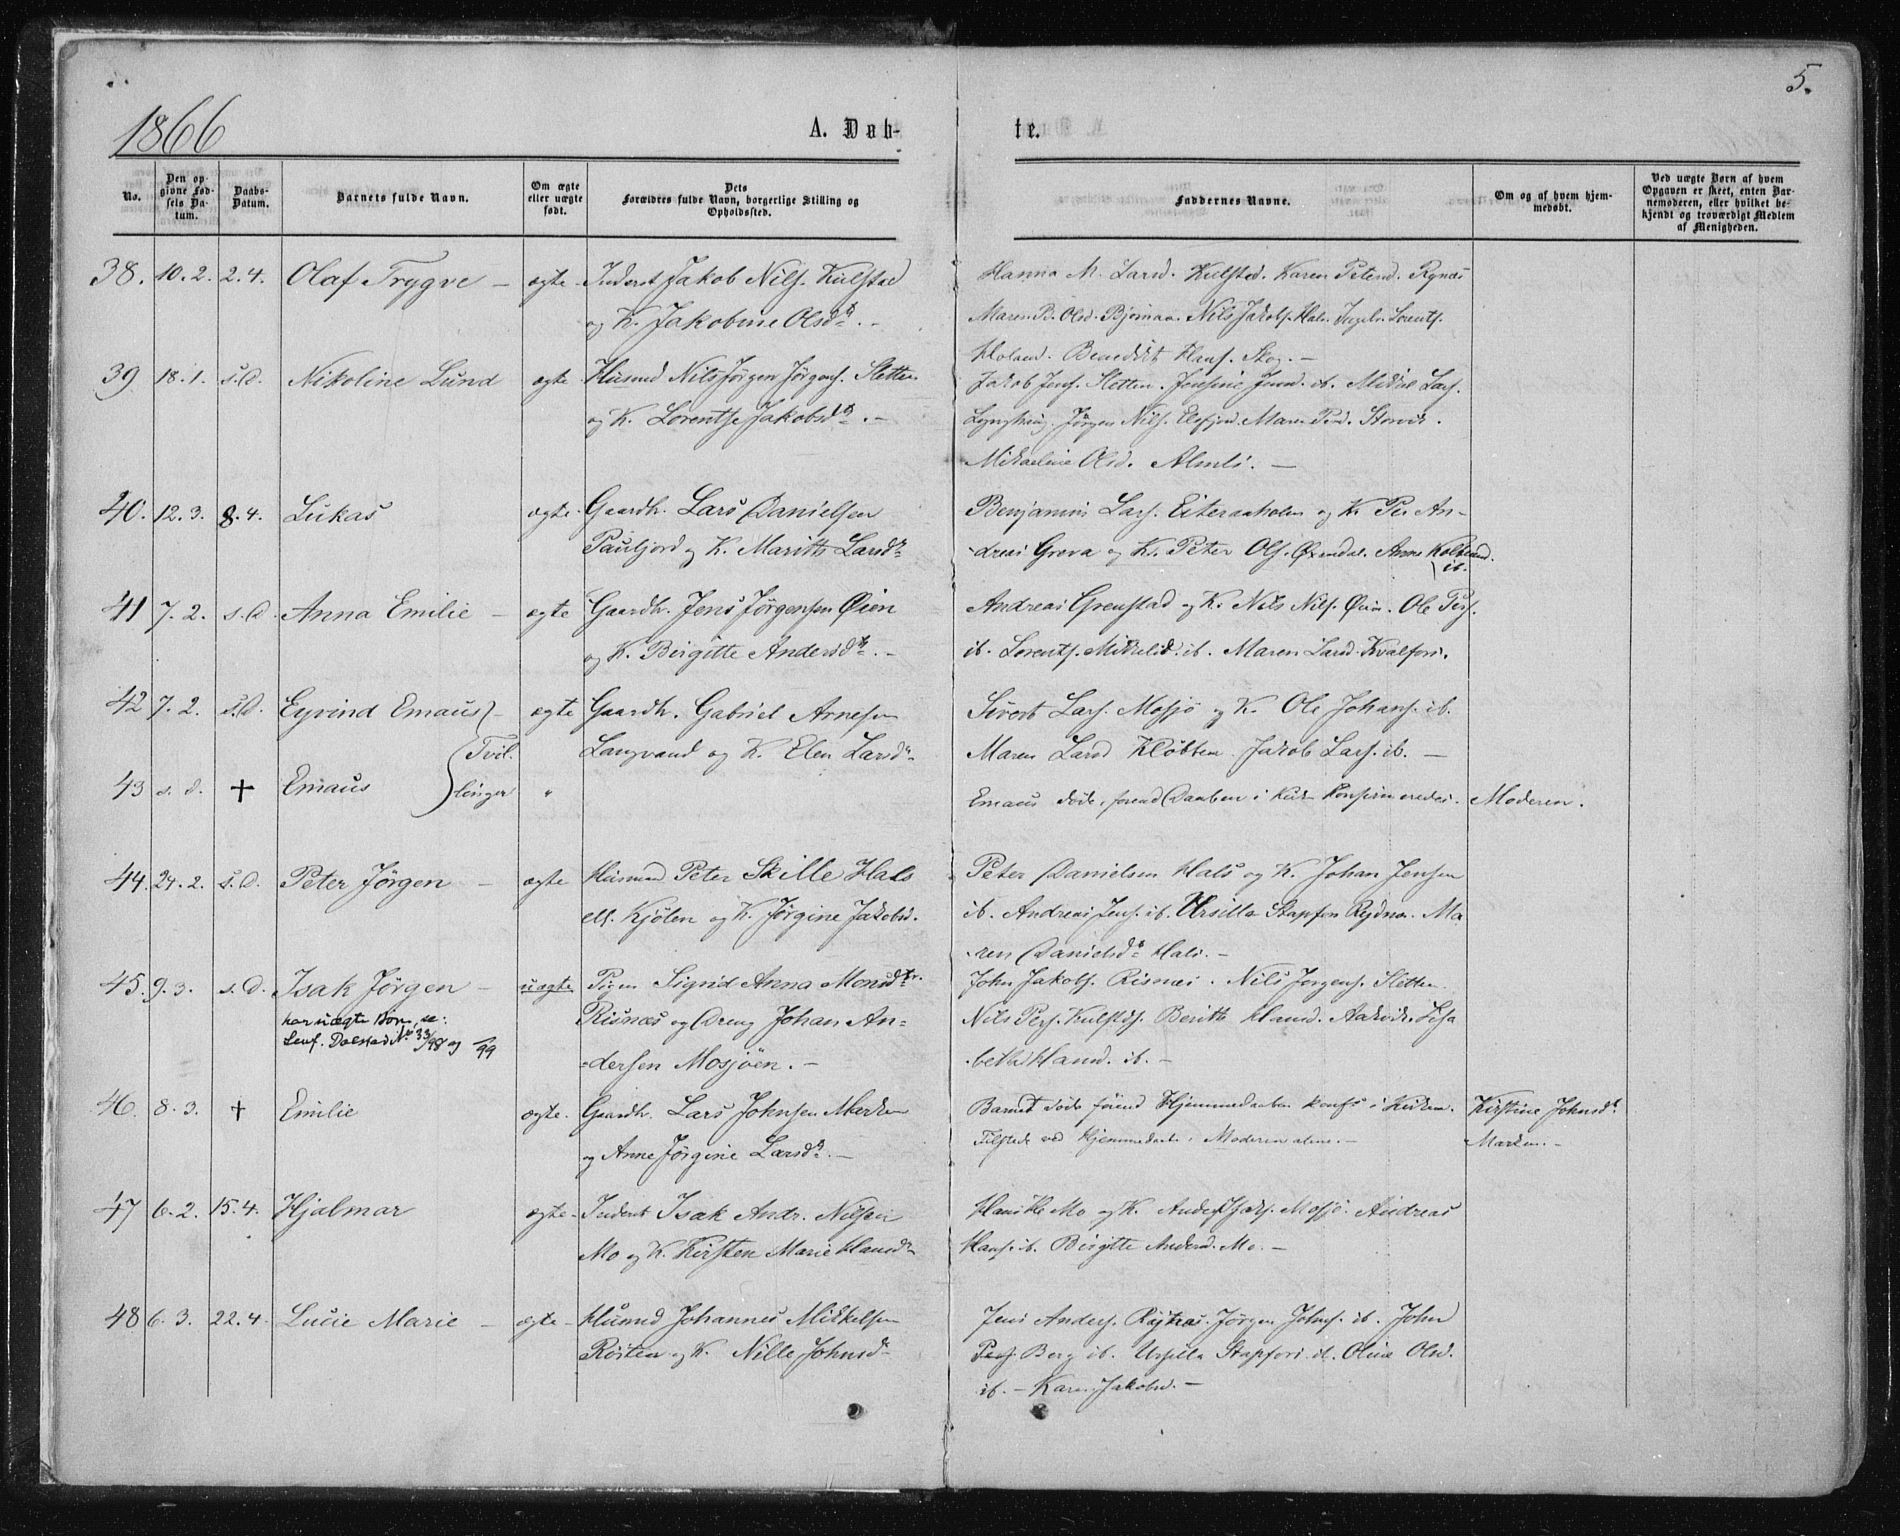 5.
1866
A. Døb-
te.
No.
Den op-
givne Fød-
sels Da-
tum.
Daabs-
Datum.
Barnets fulde Navn.
Om ægte
eller uægte
født.
Dets
Forældres fulde Navn, borgerlige Stilling og
Opholdssted.
Faddernes Navne.
Om og af hvem hjem-
medøbt.
Ved uægte Børn af hvem
Opgaven er skeet, enten Bar-
nemoderen, eller hvilket be-
kjendt og troværdigt Medlem
af Menigheden.
38. 10.2. 2.4. Olaf Trygve – ægte Inderst Jakob Nils. Kulstad
og K. Jakobine Olsdtr. –
Hanna M. Larsd. Kulstad. Karen Petersd. Rynes
Maren B. Olsd. Bjørnaa. Nils Jakobs. Hals. Lorents.
Benedikt Hans. Skog. –
39 18.1. s.D. Nikoline Lund ægte Husmd Nils Jørgen Jørgens. Sletten
og K. Lorentse Jakobsdtr. –
Jakob Jens. Sletten. Jensine Jensd. ib. Mikal Lars.
Jørgen Nils. Elsfjord. Maren Persd. Storvik.
Mikaeline Olsd. Almli. –
40. 12.3. 8.4. Lukas ægte. Gaardbr. Lars Danielsen
Pauljord og K. Maritte Larsdr
Benjamin Lars. Eiteraaholm og K. Per An-
dreas Greva og K. Peter Ols. Øxendal. Anne
ib.
41 7.2. s.D. Anna Emilie – ægte Gaardbr. Jens Jørgensen Øien
og K. Birgitte Andersdtr. –
Andreas Grenstad og K. Nils Nils. Øien. Ole Pers.
ib. Lorents. Mikkels. ib. Maren Larsd. Kvalfors.
42 7.2. s.D. Eyvind Emaus – ægte Gaardbr. Gabriel Arnesen
Langvand og K. Elen Larsdr
Tvil-
linger
Sivert Lars. Mosjø og K. Ole Johans. ib.
Maren Larsd Kløbten Jakob Lars. ib. –
43 s.d. † Emaus "
Emaus døde, førend Daaben i Kirk. Konfirmeredes. Moderen.
44. 24.2. s.D. Peter Jörgen – ægte Husmand Peter Skille Hals
ell. Kjølen og K. Jørgine Jakobsd.
Peter Danielsen Hals og K. Johan Jensen
ib. Andreas Jens. ib. Ursilla Stapfors Rydnes. Ma
ren Danielsdtr Hals. –
45. 9.3. s.D. Isak Jörgen – uægte Pigen Sigrid Anna Monsdtr.
Risnæs og Dreng Johan An-
dersen Mosjøen. –
har uægte Børn, se:
Dolstad No 33/98 og /99
John Jakobs. Risnæs. Nils Jørgens. Sletten.
Nils Pers. Kulstadsj. Berith Hansd. Aakvik. Lisa
beth Hansd. ib. –
46. 8.3. † Emilie ægte. Gaardbr. Lars Johnsen Marken
og Anne Jørgine Larsdtr. –
Barnet døde førend Hjemmedaaben konfs i Kirken.
Tilstede ved Hjemmedaab. Moderen alene. –
Kirstine Johnsdtr
Marken. –
47 6.2. 15.4. Hjalmar ægte – Inderst Isak Andr. Nilsen
Mo og K. Kirsten Marie Hansdr
Hans Mo og K. Anders Isaks. Mosjø. Andreas
Hans. ib. Birgitte Andersd. Mo. –
48 6.3. 22.4. Lucie Marie – ægte – Husmd Johannes Mikkelsen
Røiten og K. Nille Johnsdr
Jens Anders. Rynes. Jørgen Johns. ib. John
Pers. Berg ib. Ursilla Stapfors. ib. Oline Olsd.
ib. – Karen Jakobsd. –